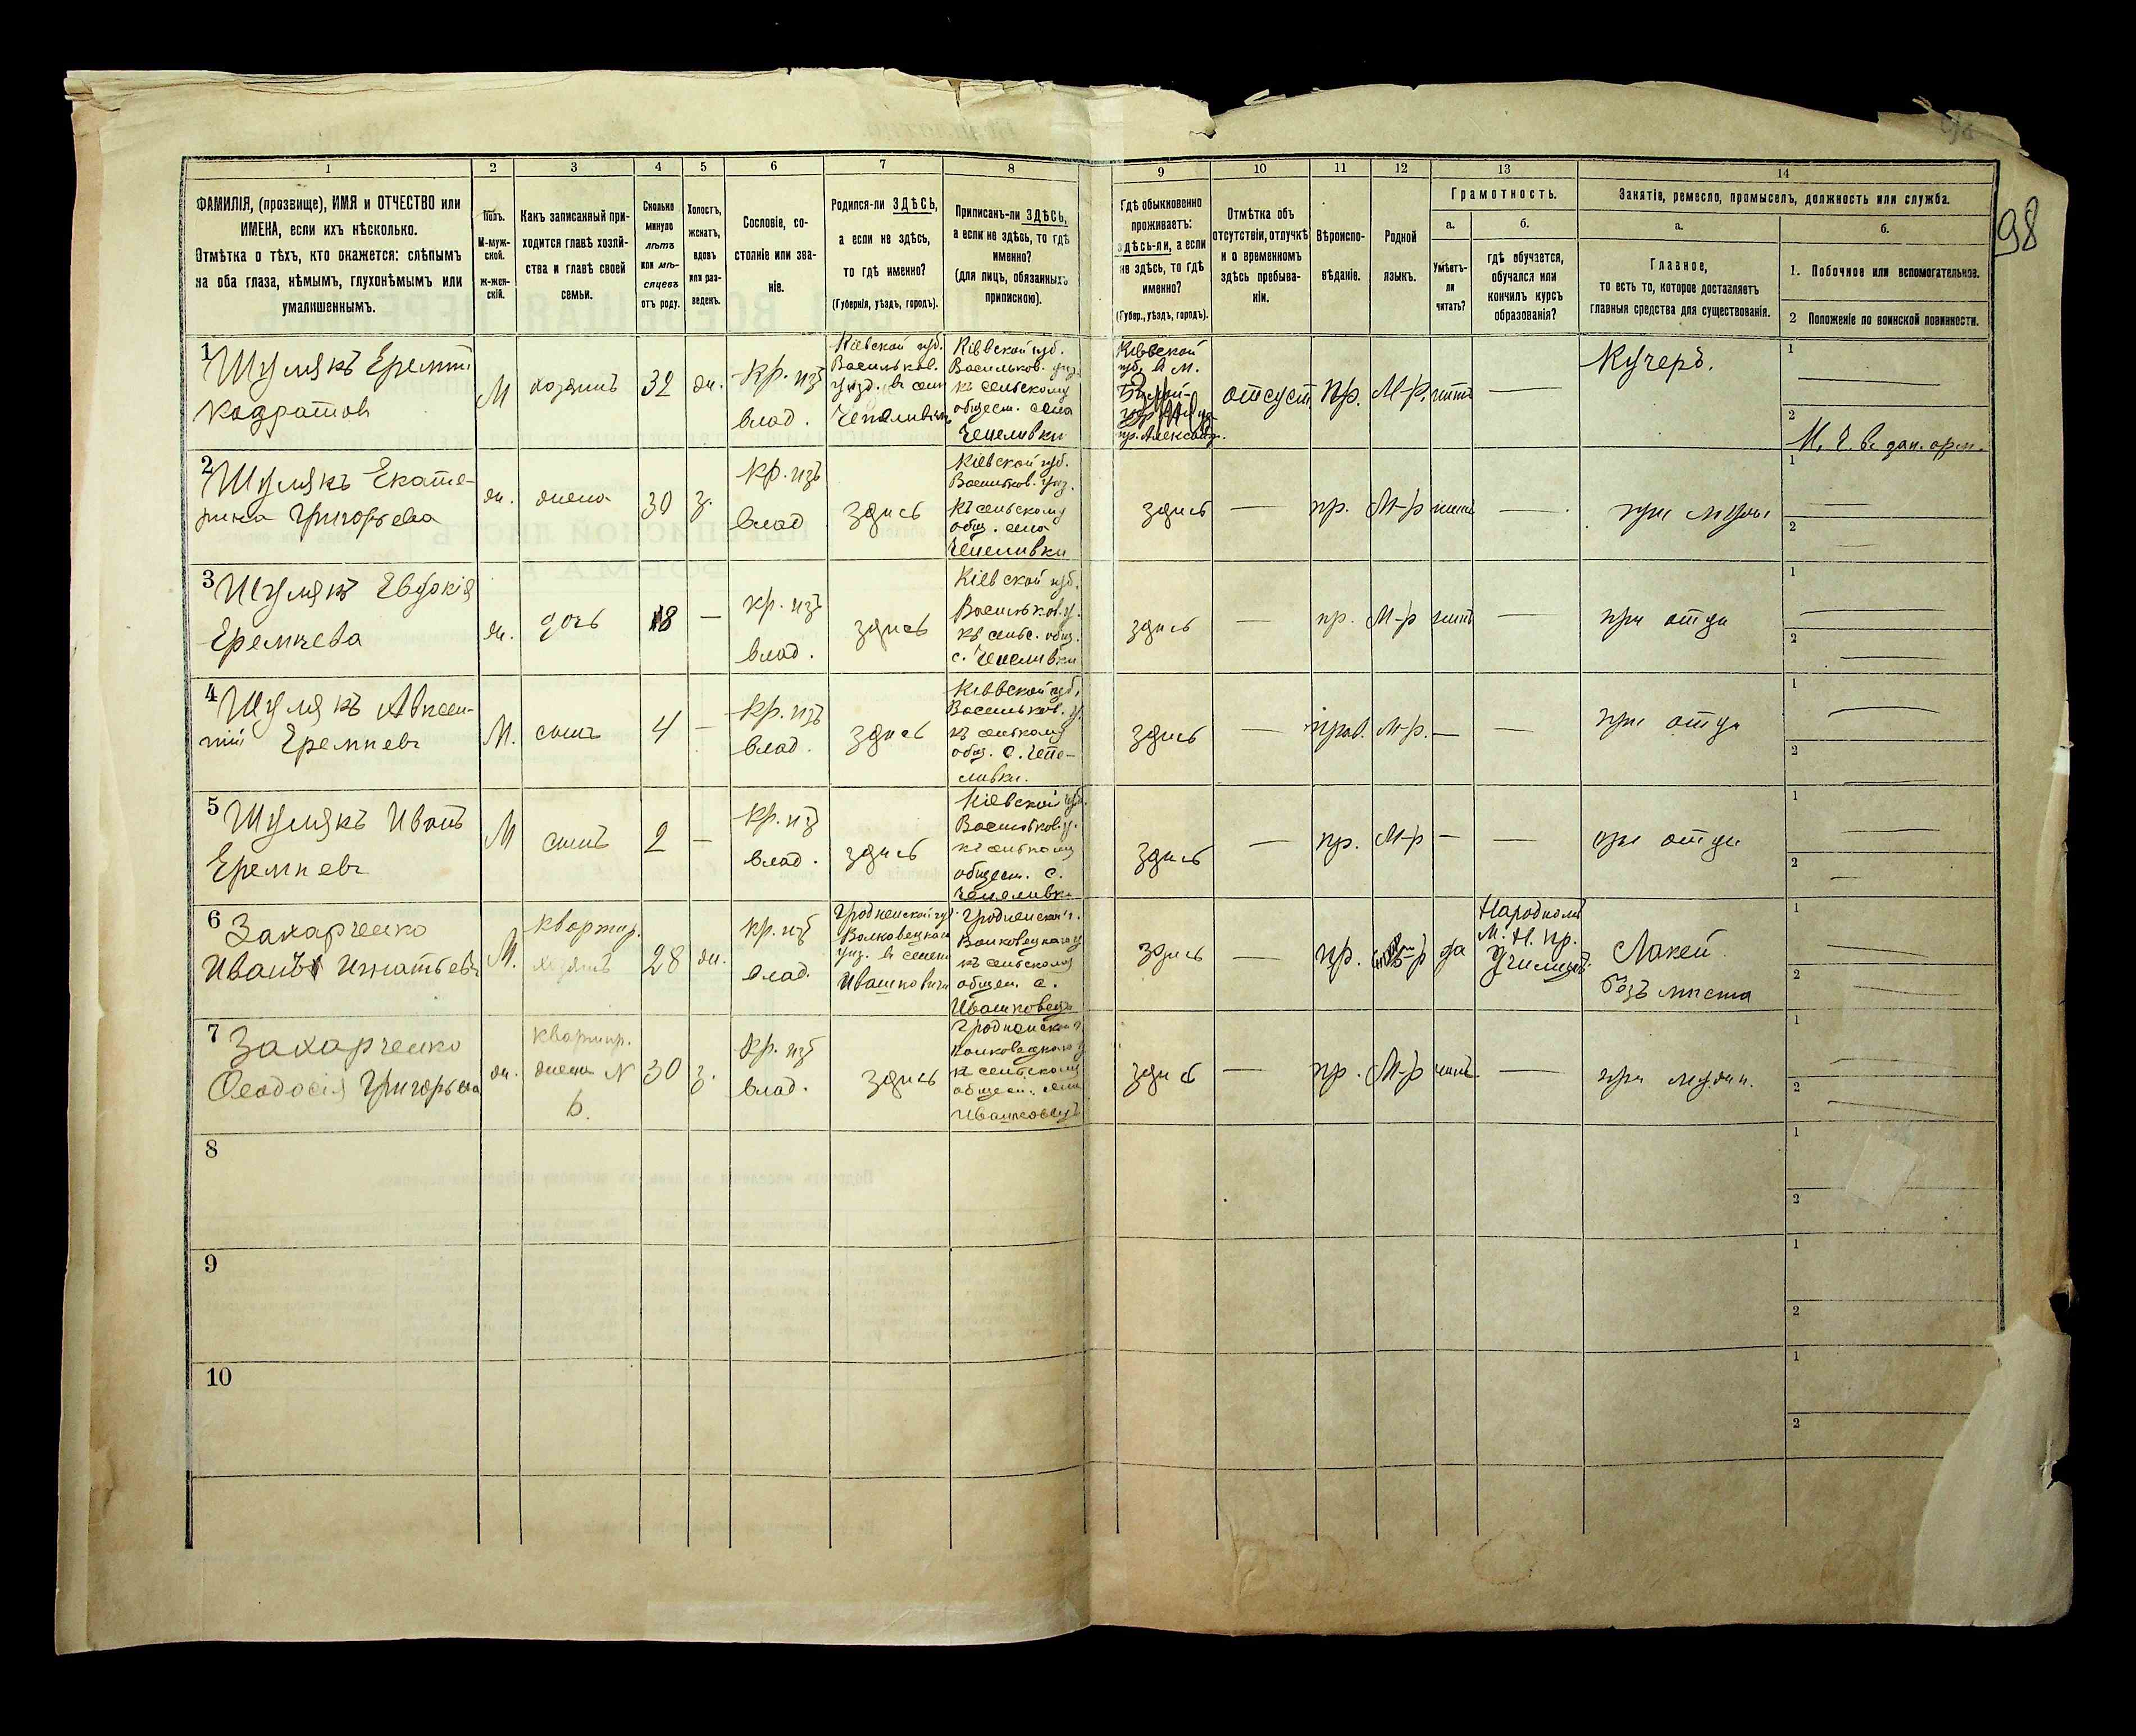 98
1
2
3
4
5
6
7
8
9
10
11
12
13
14
ФАМИЛІЯ, (прозвище), ИМЯ и ОТЧЕСТВО или
ИМЕНА, если ихъ нѣсколько.
Отмѣтка о тѣхъ, кто окажется: слѣпымъ
на оба глаза, нѣмымъ, глухонѣмымъ или
умалишеннымъ.
Полъ.
М-муж-
ской.
Ж-жен-
скій.
Какъ записанный при-
ходится главѣ хозяй-
ства и главѣ своей
семьи.
Сколько
минуло
лѣтъ
или мѣ-
сяцевъ
отъ роду.
Холостъ,
женатъ,
вдовъ
или раз-
веденъ.
Сословіе, со-
стояніе или зва-
ніе.
Родился-ли ЗДѢСЬ,
а если не здѣсь,
то гдѣ именно?
(Губернія, уѣздъ, городъ).
Приписанъ-ли ЗДѢСЬ,
а если не здѣсь, то гдѣ
именно?
(для лицъ, обязанныхъ
припискою).
Гдѣ обыкновенно
проживаетъ:
здѣсь-ли, а если
не здѣсь, то гдѣ
именно?
(Губер., уѣздъ, городъ).
Отмѣтка объ
отсутствіи, отлучкѣ
и о временномъ
здѣсь пребыва-
ніи.
Вѣроиспо-
вѣданіе.
Родной
языкъ.
Грамотность.
а.
б.
Умѣетъ-
ли
читать?
гдѣ обучается,
обучался или
кончилъ курсъ
образованія?
Занятіе, ремесло, промыселъ, должность или служба.
а.
б.
Главное,
то есть то, которое доставляетъ
главныя средства для существованія.
1. Побочное или вспомогательное.
2 Положеніе по воинской повинности.
1
Шулякъ Еремій
Кодратовъ
М
хозяинъ
32
ж.
кр. изъ
влад.
Кіевской губ.
Васильков.
уѣзд. в селѣ
Кіевской губ.
Васильков. уѣз.
къ сельскому
общест. села
Чепеливки
Кіевской
губ. в М.
отсуст.
пр.
М-р.
нѣтъ
—
Кучеръ.
1
2
2
Шулякъ Екате-
рина Григорьева
ж.
жена
30
з.
кр. изъ
влад
здѣсь
Кіевской губ.
Васильков. уѣз.
къ сельскому
общ. села
Чепеливки
здѣсь
—
пр.
М-р
нѣтъ
—
при мужѣ
1
2
3
Шулякъ Евдокія
Еремѣева
ж.
дочь
8
—
кр. изъ
влад.
здѣсь
Кіевской губ.
Васильков. у.
къ сельс. общ.
с. Чепеливки
здѣсь
—
пр.
М-р
нѣтъ
—
при отцѣ
1
2
4
Шулякъ Авксен-
тій Еремѣевъ
М.
сынъ
4
—
кр. изъ
влад.
здѣсь
Кіевской губ.
Васильков. у.
къ сельскому
общ. с. Чепе-
ливки.
здѣсь
—
прав.
М-р.
—
—
при отцѣ
1
2
5
Шулякъ Иванъ
Еремѣевъ
М
сынъ
2
—
кр. изъ
влад.
здѣсь
Кіевской губ.
Васильков. у.
къ сельскому
общест. с.
Чепеливки
здѣсь
—
пр.
М-р
—
—
при отцѣ
1
2
6
Захарченко
Иванъ Игнатьевъ
М.
квартир.
хозяинъ
28
ж.
кр. изъ
влад.
Гродненской губ.
Волковецкаго
уѣз. в селеніи
Ивашковичи
Гродненской г.
Волковецкаго у
къ сельскому
общест. с.
здѣсь
—
пр.
да
Народномъ
М. Н. пр.
Училищѣ
Лакей
безъ мѣста
1
2
7
Захарченко
Ѳеодосія Григорьева
ж.
квартир.
жена N
6.
30
з.
кр. изъ
влад.
здѣсь
Гродненской г.
Волковецкаго у
къ сельскому
общест. села
здѣсь
—
пр.
М-р
нѣтъ
—
при мужѣ.
1
2
8
1
2
9
1
2
10
1
2